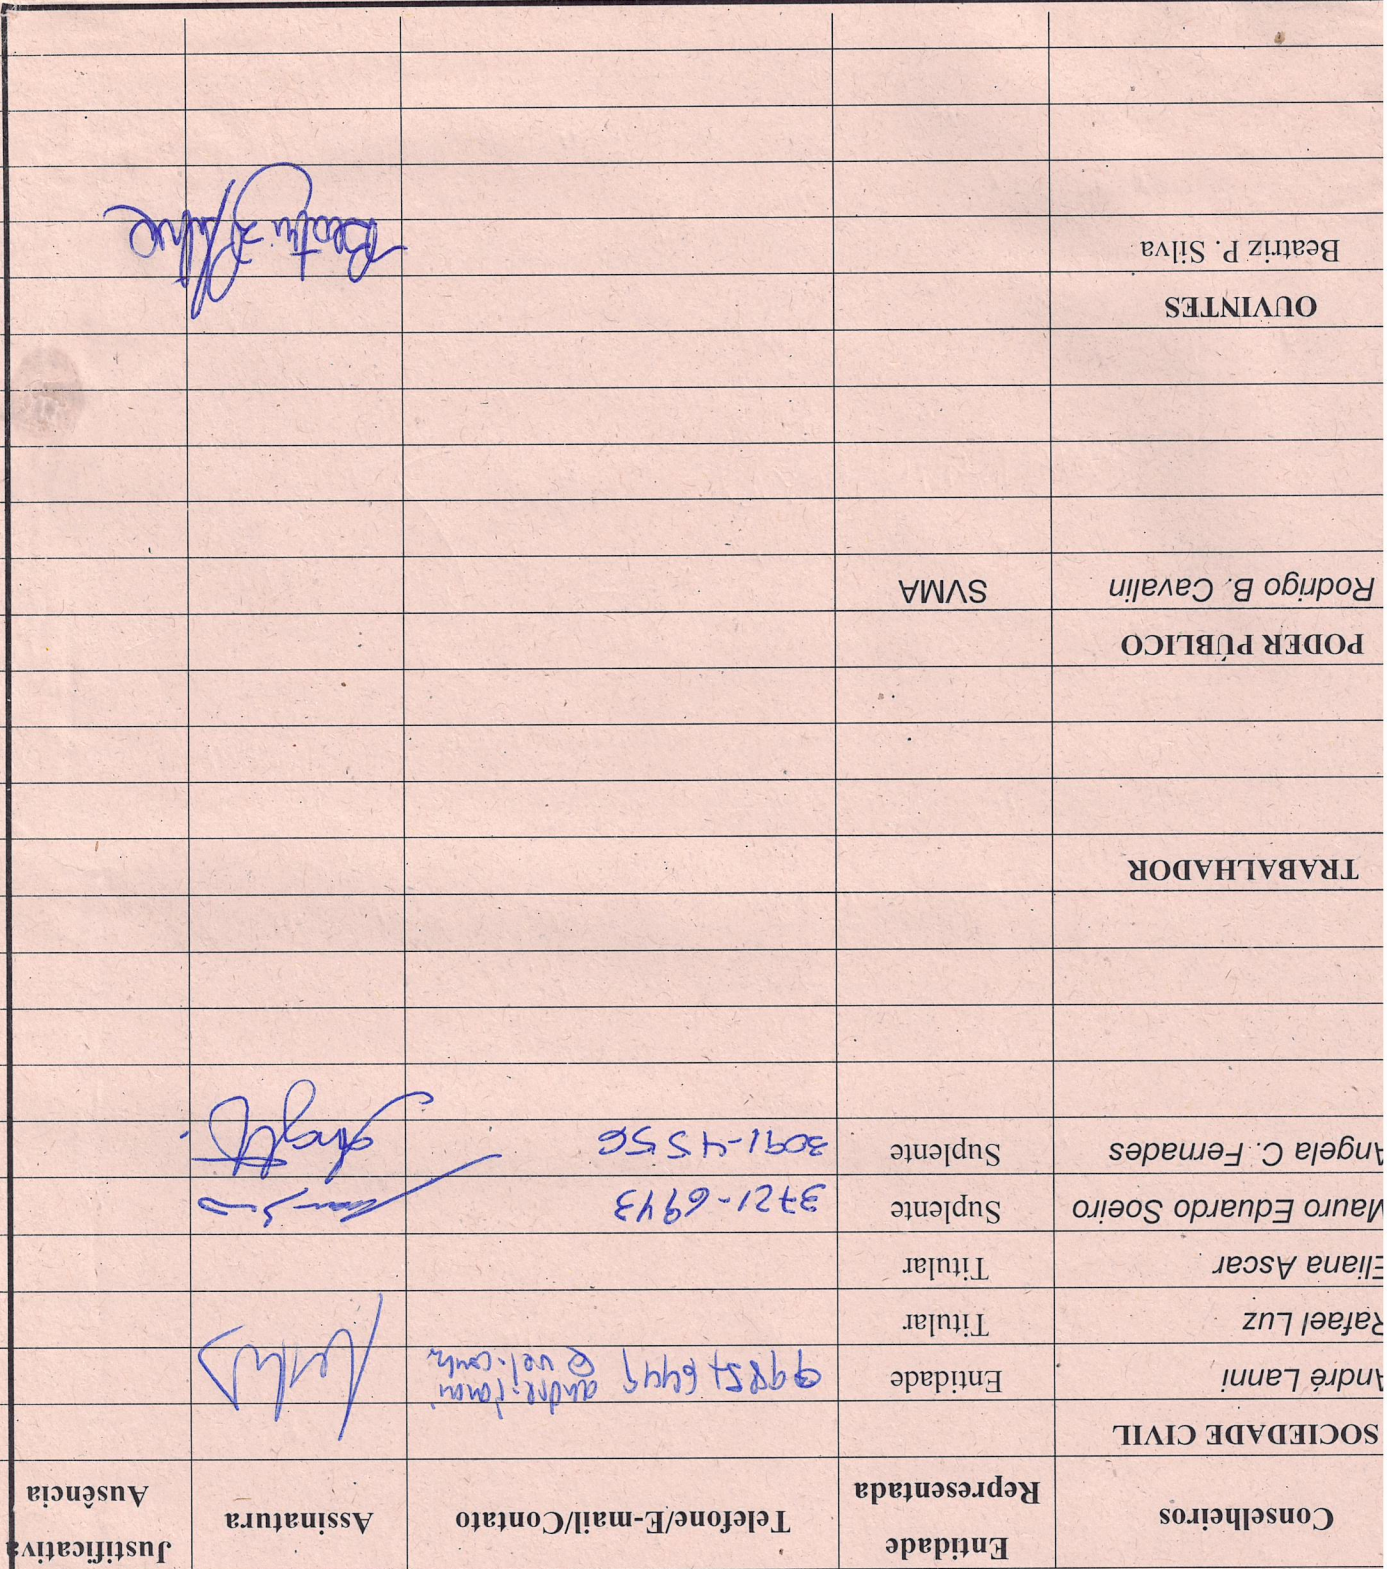 Conselheiros Entidade Representada Telefone/E-mail/Contato Assinatura Justificativa Ausência
SOCIEDADE CIVIL
André Lanni Entidade
Rafael Luz Titular
Eliana Ascar Titular
Mauro Eduardo Soeiro Suplente 3721-6943
Angela C. Fernades Suplente 3091-4556
TRABALHADOR
PODER PÚBLICO
Rodrigo B. Cavalin SVMA
OUVINTES
Beatriz P. Silva Beatriz P Silva